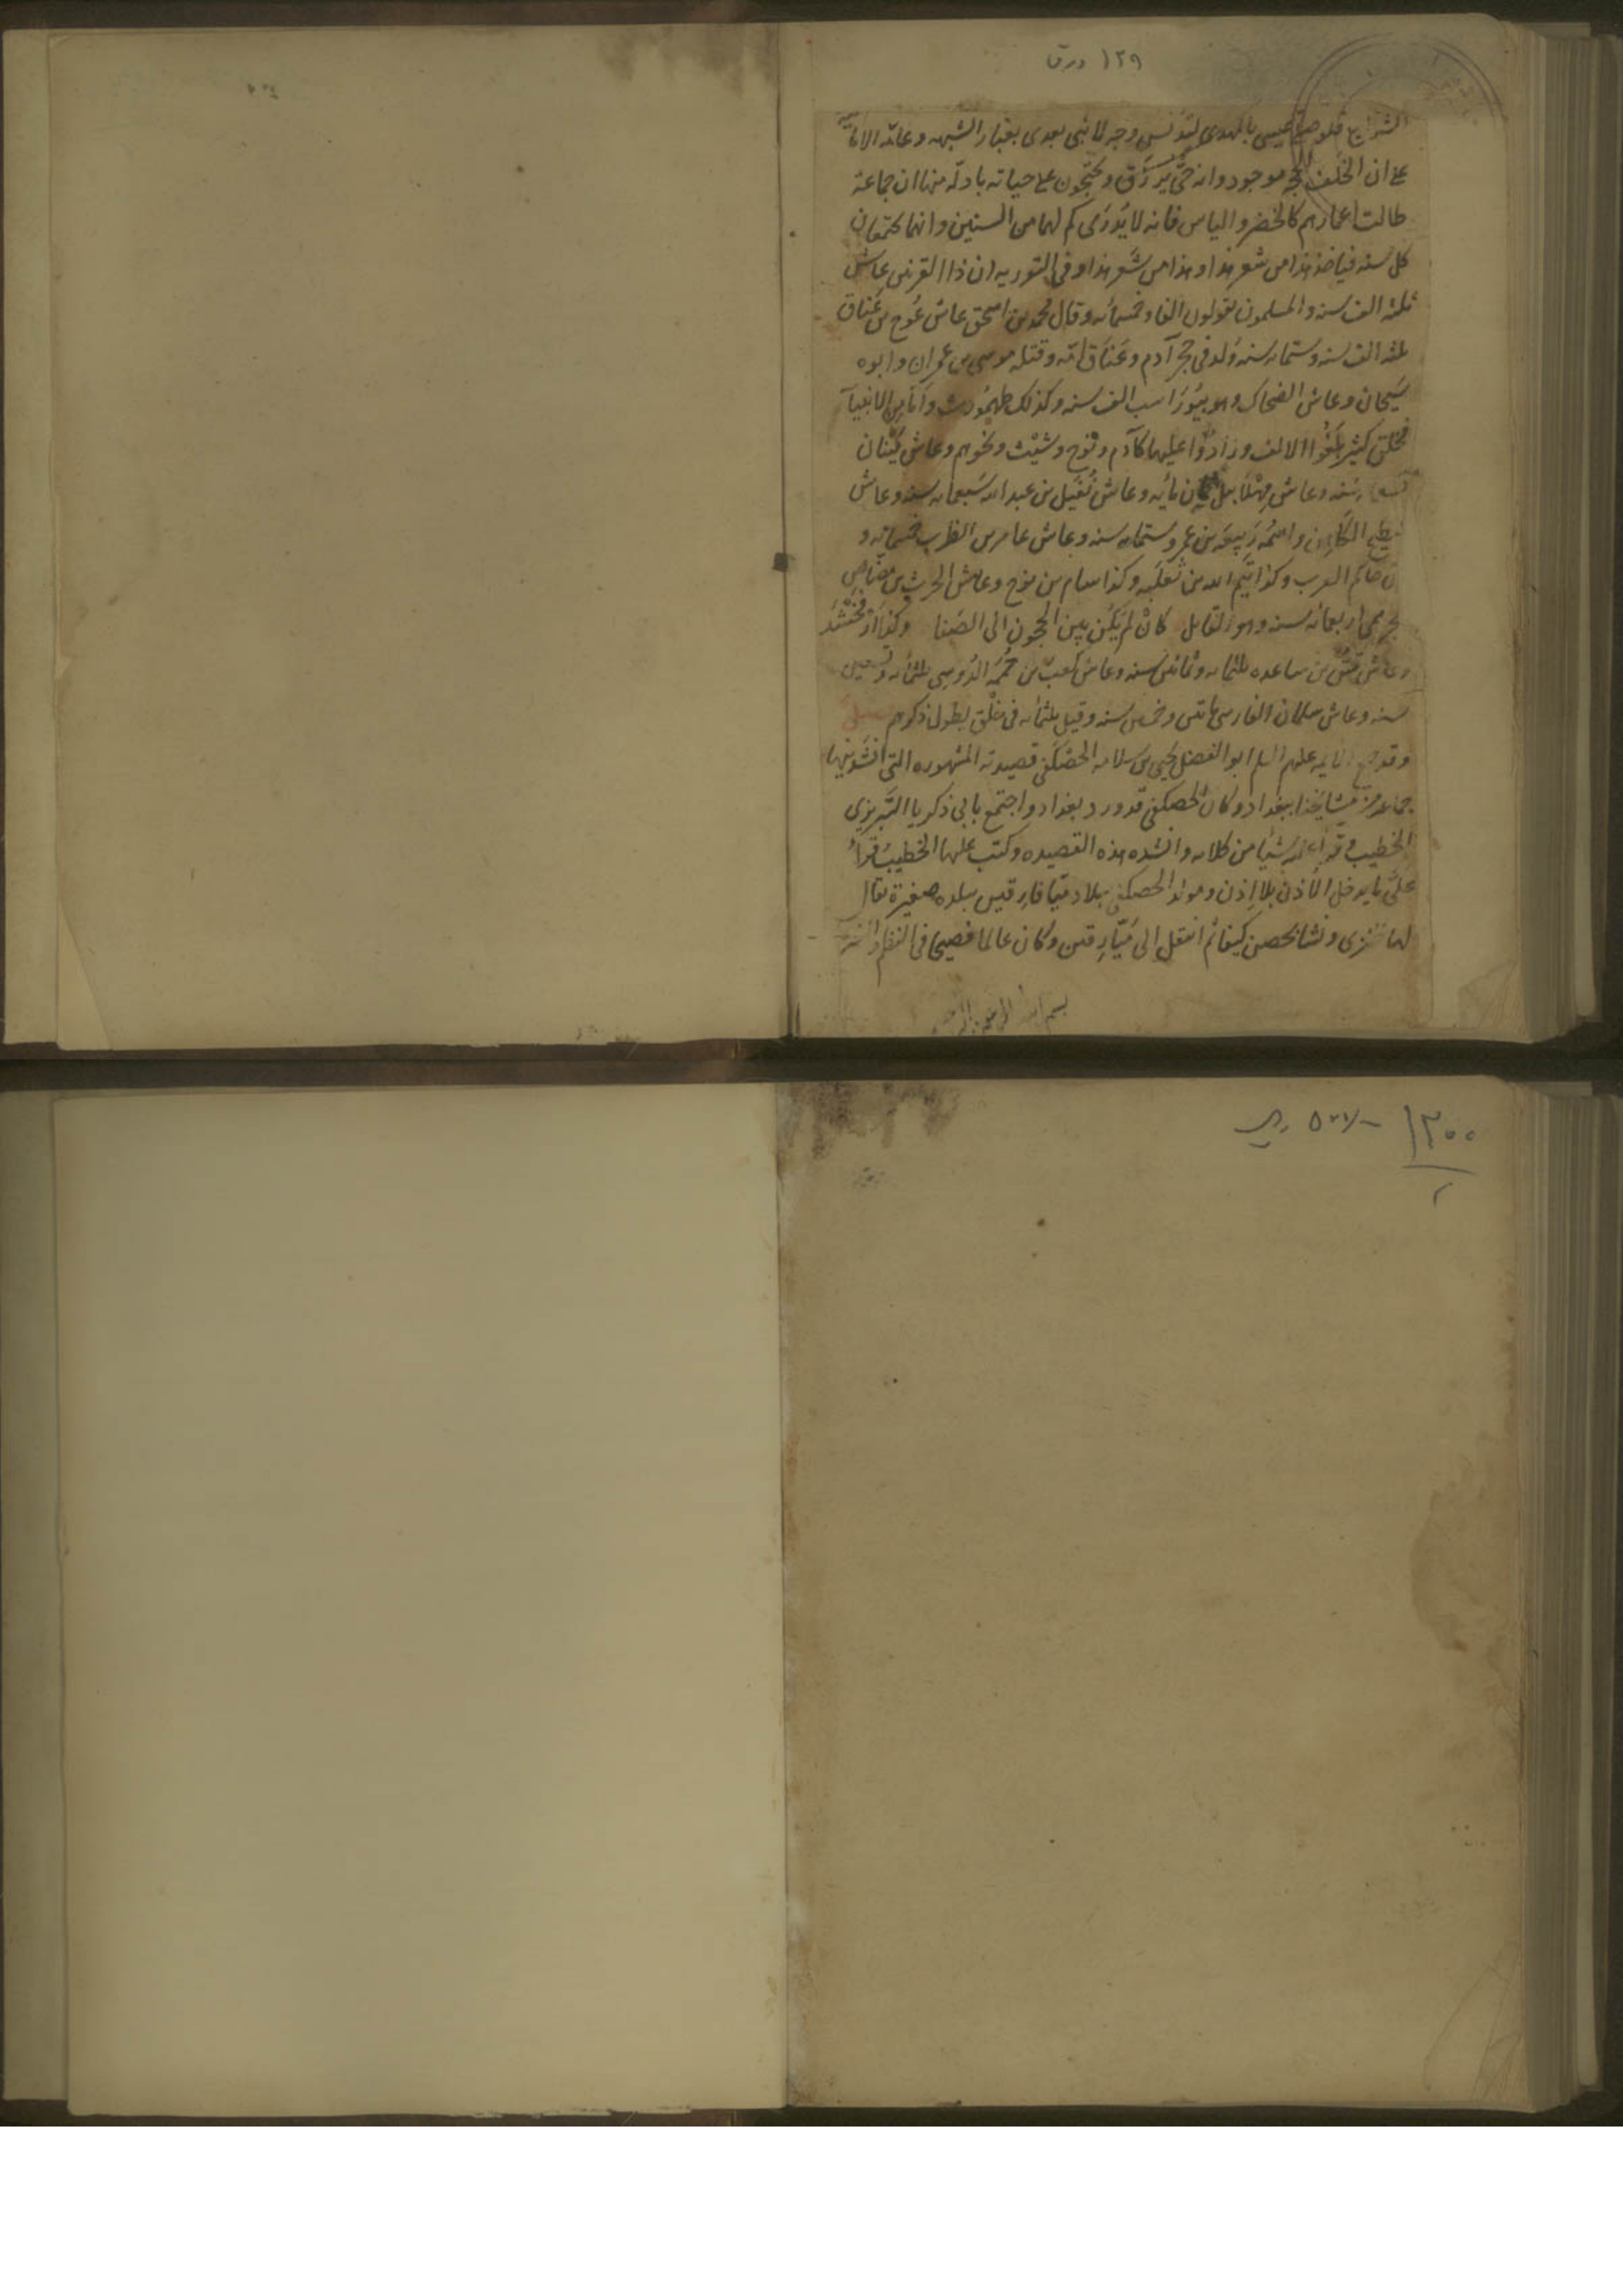 ١٢٩ ورق
الشرايع فلو صلى عيسى بالمهدى لتدنس وجه لا نبى بعدى بغبار الشبهه وعامة الامامية
على ان الخلف الحجه موجود وانه حىّ يُرزَق ويحتجّون على حياته بادلّه منها ان جماعة
طالت اعمارهم كالخضر والياس فانه لا يُدرَى كم لهما من السنين وانهما يجتمعان
كل سنه فياخذ هذا من شعر هذا وهذا من شَعر هذا وفى التوريه ان ذا القرنين عاش
ثلثه الف سنه والمسلمون يقولون الفا وخمسمائه وقال محمد بن اسحق عاش عُوج بن عَناق
ثلثه الف سنه وستمايه سنه وُلد فى حجر آدم وعَناق امّه وقتله موسى بن عمران وابوه
سَيحان وعاش الضحاك وهو بيُورَاسب الف سنه وكذلك طهمُورث وامّا من الانبيآ
فخلق كثير بَلَغُوا الالف وزادُوا عليها كآدم ونوح وشِيْث ونحوهم وعاش قَينان
سنه وعاش مِهْلَايِل ثمان مأيه وعاش نُفَيل بن عبد الله سَبعمايه سنه وعاش
سطيح الكَاهِن واسمُه رَبِيعَه بن عمر وستمايه سنه وعاش عامر بن الظرب خمسمائه و
كان حاكم العرب وكذا تَيم الله بن ثَعلَبَه وكذا سام بن نوح وعاش الحرث بن مضاض
الجرهمى اربعمائه سنه وهو القايل كَانْ لم يَكُن بين الحجون الى الصَفا وكذا ارْفَخْشَد
وعاش قُسّ بن ساعده ثلثمايه وثمانين سنه وعاش كعب بن حُمَمَه الدَوسى ثلثمائه وتسعين
سنه وعاش سلمان الفارسى مائتين وخمسين سنه وقيل ثلثمايه فى خلْق يطول ذكرهم
وقد جمع الايمه عليهم السلم ابو الفضل يحيى بن سلامه الحَصْكَفى قصيدته المشهوره التى انشَدنيها
جماعة من مَشايخنا ببغداد وكان الحصكفى قد ورد بغداد واجتمع بابى ذكريا التَبريزى
الخطيب وقرأ عليه شيأ من كلامه وانشده هذه القصيده وكتب عليها الخطيبُ قَرأ
علىّ ما يدخل الأذن بلا إذن ومولد الحصكفى ببلاد ميّافارقين ببلده صغيرة يقال
لها طنزى ونشا بحصن كيفا ثم انتقل الى مَيّارِقين وكان عالما فصيحا فى النظم والنثر
بسم الله الرحمن الرحيم
١٣٠٠